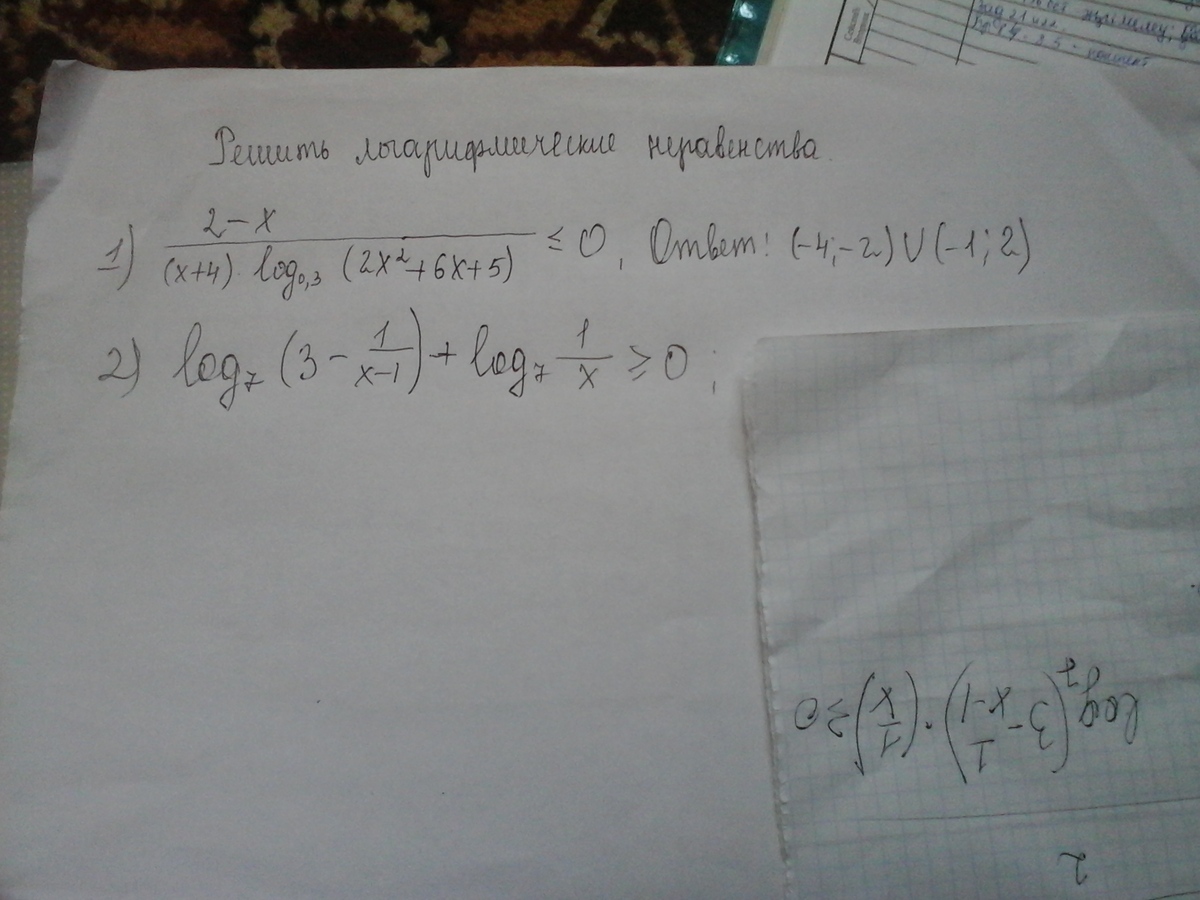 Решить логарифмические неравенства.
1) \frac{2-x}{(x+4) \cdot log_{0,3} (2x^2+6x+5)} ≤ 0, Ответ: (-4;-2)∪(-1;2)
2) log_7 (3 - \frac{1}{x-1}) + log_7 \frac{1}{x} ≥ 0;
log_7 (3 - \frac{1}{x-1}) \cdot (\frac{1}{x}) ≥ 0
2